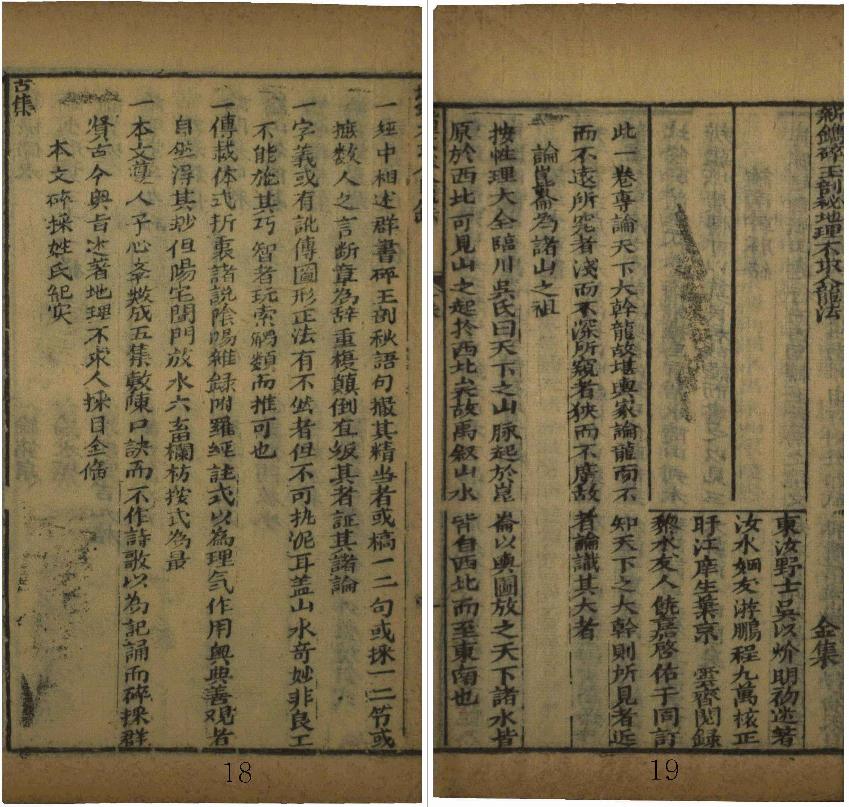 一經中相述群書碎玉剖秘語句撮其精當者或槁一二句或採一二節或
摭數人之言斷章為辞重複顛倒宜級其者証其諸論
一字義或有訛傳圖形正法有不然者但不可执泥耳盖山水奇妙非良工
不能施其巧智者玩索觸類而推可也
一傳載体式折衷諸說陰陽雜録附羅經註式以為理气作用與典善观者
自坐淂其玅但陽宅開門放水六畜欄枋按式為最
一本文尊人子心成五集敷陳口訣而不作詩歌以為記誦而碎採群
賢古今奥旨述著地理不求人採目全俻
本文碎採姓氏紀实
吉集
18
新鐫碎玉剖秘地理不求人龍法 金集
東汝野士吳以𡵚明初述著
汝水姻友游鵬程九萬核正
盱江庠生葉京雲齋閱録
黎水友人饒嘉啓佑于同訂
此一卷專論天下大幹龍故堪輿家論龍而不知天下之大幹則所見者近
而不遠所究者淺而不深所窺者狹而不廣故者論識其大者
論崑崙為諸山之祖
按性理大全臨川吳氏曰天下之山脉起於崑崙以輿圖放之天下諸水皆
原於西北可見山之起於西北矣故禹叙山水皆自西北而至東南也
19